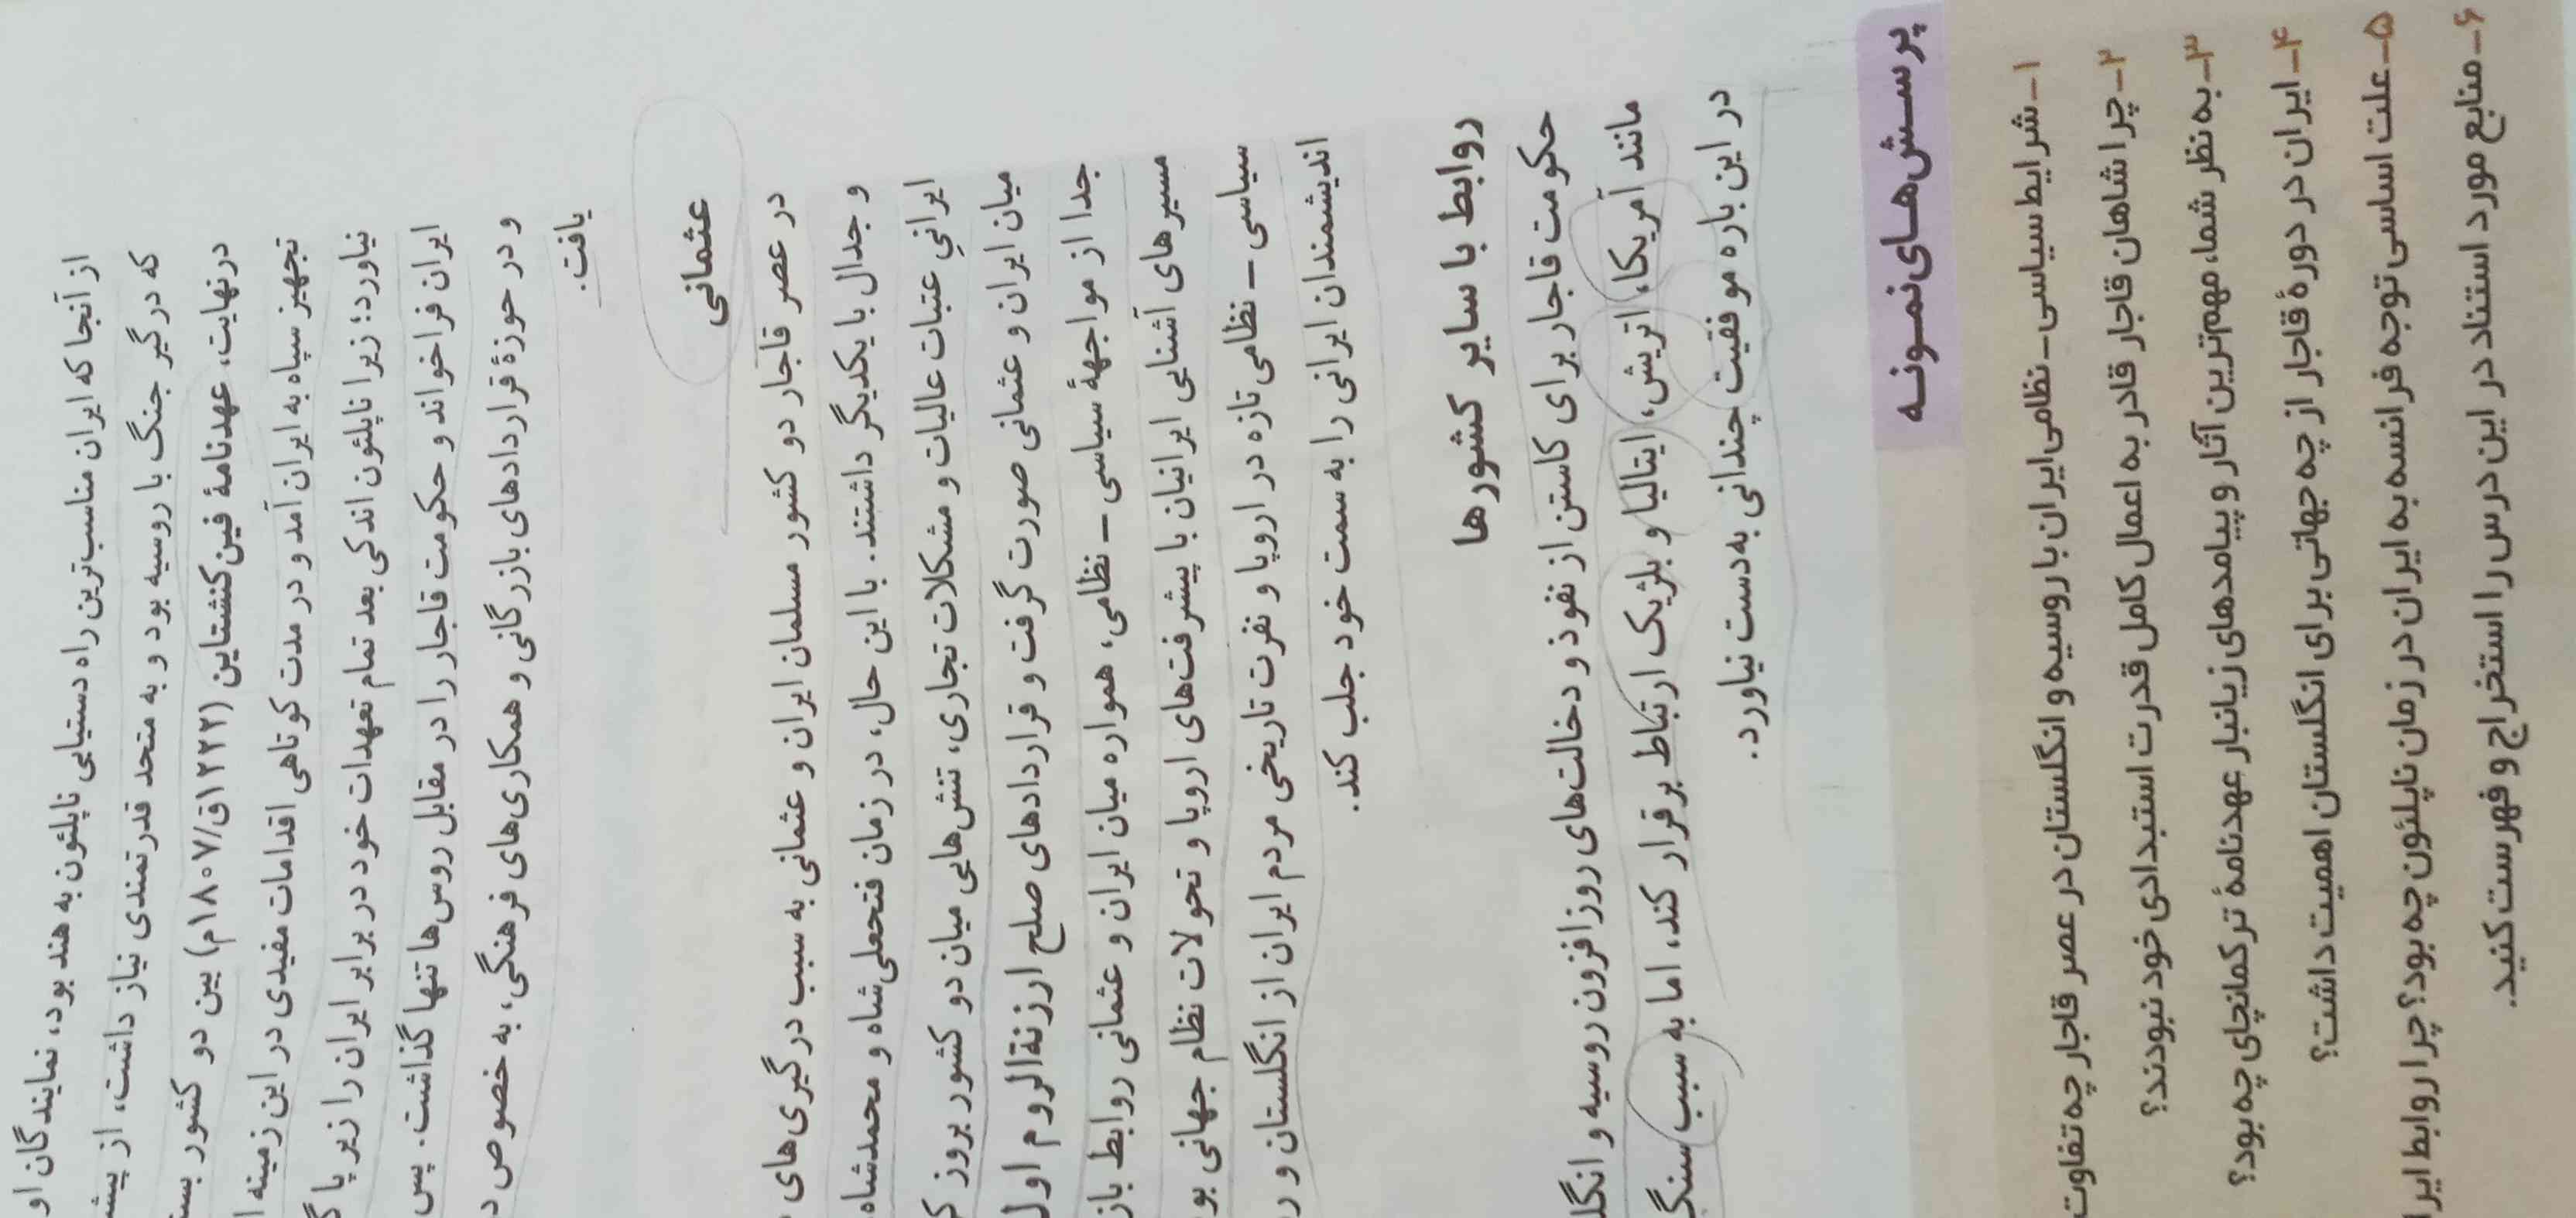 از آنجا که ایران مناسب‌ترین راه دستیابی ناپلئون به هند بود، نمایندگان او
که درگیر جنگ با روسیه بود و به متحد قدرتمندی نیاز داشت، از
درنهایت، عهدنامهٔ فین‌کنشتاین (۱۲۲۲ق/۱۸۰۷م) بین دو کشور
تجهیز سپاه به ایران آمد و در مدت کوتاهی اقدامات مفیدی در این زمینه
نیاورد؛ زیرا ناپلئون اندکی بعد تمام تعهدات خود در برابر ایران را زیر پا
ایران فراخواند و حکومت قاجار را در مقابل روس‌ها تنها گذاشت. پس
و در حوزهٔ قراردادهای بازرگانی و همکاری‌های فرهنگی، به خصوص
یافت.
عثمانی
در عصر قاجار دو کشور مسلمان ایران و عثمانی به سبب درگیری‌های
و جدال با یکدیگر داشتند. با این حال، در زمان فتحعلی‌شاه و محمدشاه
ایرانیِ عتبات عالیات و مشکلات تجاری، تنش‌هایی میان دو کشور بروز
میان ایران و عثمانی صورت گرفت و قراردادهای صلح ارزنةالروم اول
جدا از مواجههٔ سیاسی – نظامی، همواره میان ایران و عثمانی روابط
مسیرهای آشنایی ایرانیان با پیشرفت‌های اروپا و تحولات نظام جهانی
سیاسی – نظامی تازه در اروپا و نفرت تاریخی مردم ایران از انگلستان و
اندیشمندان ایرانی را به سمت خود جلب کند.
روابط با سایر کشورها
حکومت قاجار برای کاستن از نفوذ و دخالت‌های روزافزون روسیه و
مانند آمریکا، اتریش، ایتالیا و بلژیک ارتباط برقرار کند، اما به سبب
در این باره موفقیت چندانی به‌دست نیاورد.
پرسش‌های نمونه
۱– شرایط سیاسی– نظامی ایران با روسیه و انگلستان در عصر قاجار چه تفاوت
۲– چرا شاهان قاجار قادر به اعمال کامل قدرت استبدادی خود نبودند؟
۳– به نظر شما، مهم‌ترین آثار و پیامدهای زیانبار عهدنامهٔ ترکمانچای چه بود؟
۴– ایران در دورهٔ قاجار از چه جهاتی برای انگلستان اهمیت داشت؟
۵– علت اساسی توجه فرانسه به ایران در زمان ناپلئون چه بود؟ چرا روابط
۶– منابع مورد استناد در این درس را استخراج و فهرست کنید.